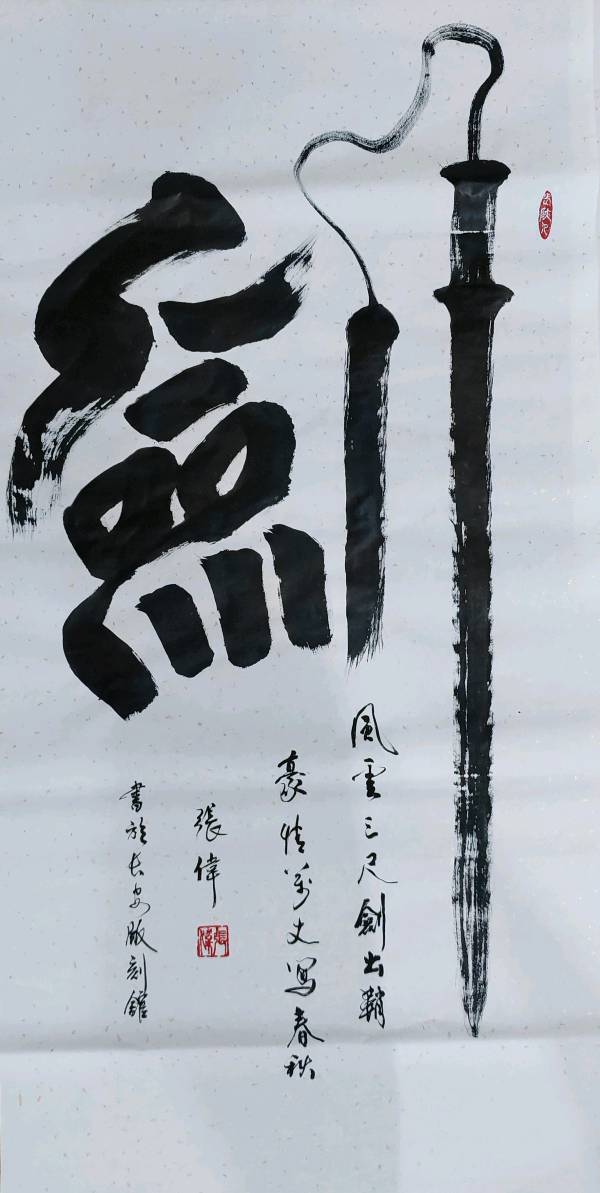 劍
風雲三尺劍出鞘
豪情萬丈寫春秋
張偉
書於長安版刻館
張偉